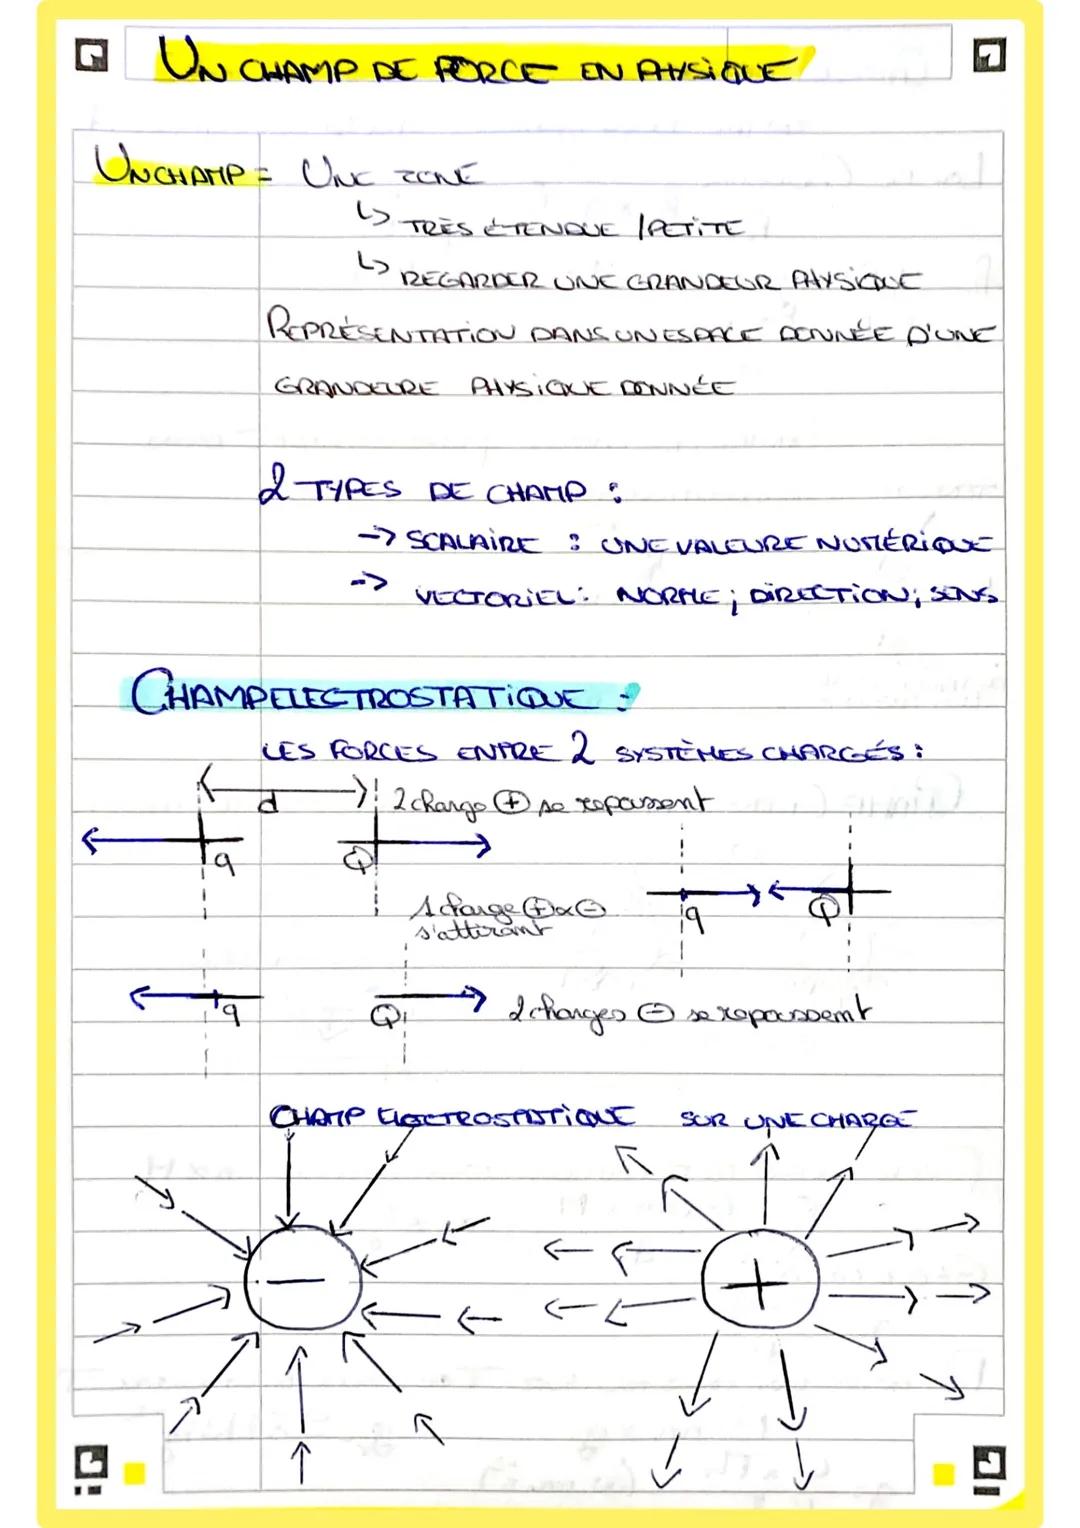 UN CHAMP DE FORCE EN PHYSIQUE
UN CHAMP = UNE ZONE
↳ TRÈS ÉTENDUE / PETITE
↳ REGARDER UNE GRANDEUR PHYSIQUE
REPRÉSENTATION DANS UN ESPACE DONNÉE D'UNE
GRANDEURE PHYSIQUE DONNÉE
2 TYPES DE CHAMP :
-> SCALAIRE : UNE VALEURE NUMÉRIQUE
-> VECTORIEL : NORME ; DIRECTION ; SENS
CHAMP ELECTROSTATIQUE :
LES FORCES ENTRE 2 SYSTÈMES CHARGÉS :
d
2 charge ⊕ se repoussent
q
Q
1 charge ⊕ &
s'attirent
q
Q
q
Q
2 charges ⊖ se repoussent
CHAMP ELECTROSTATIQUE SUR UNE CHARGE
−
+